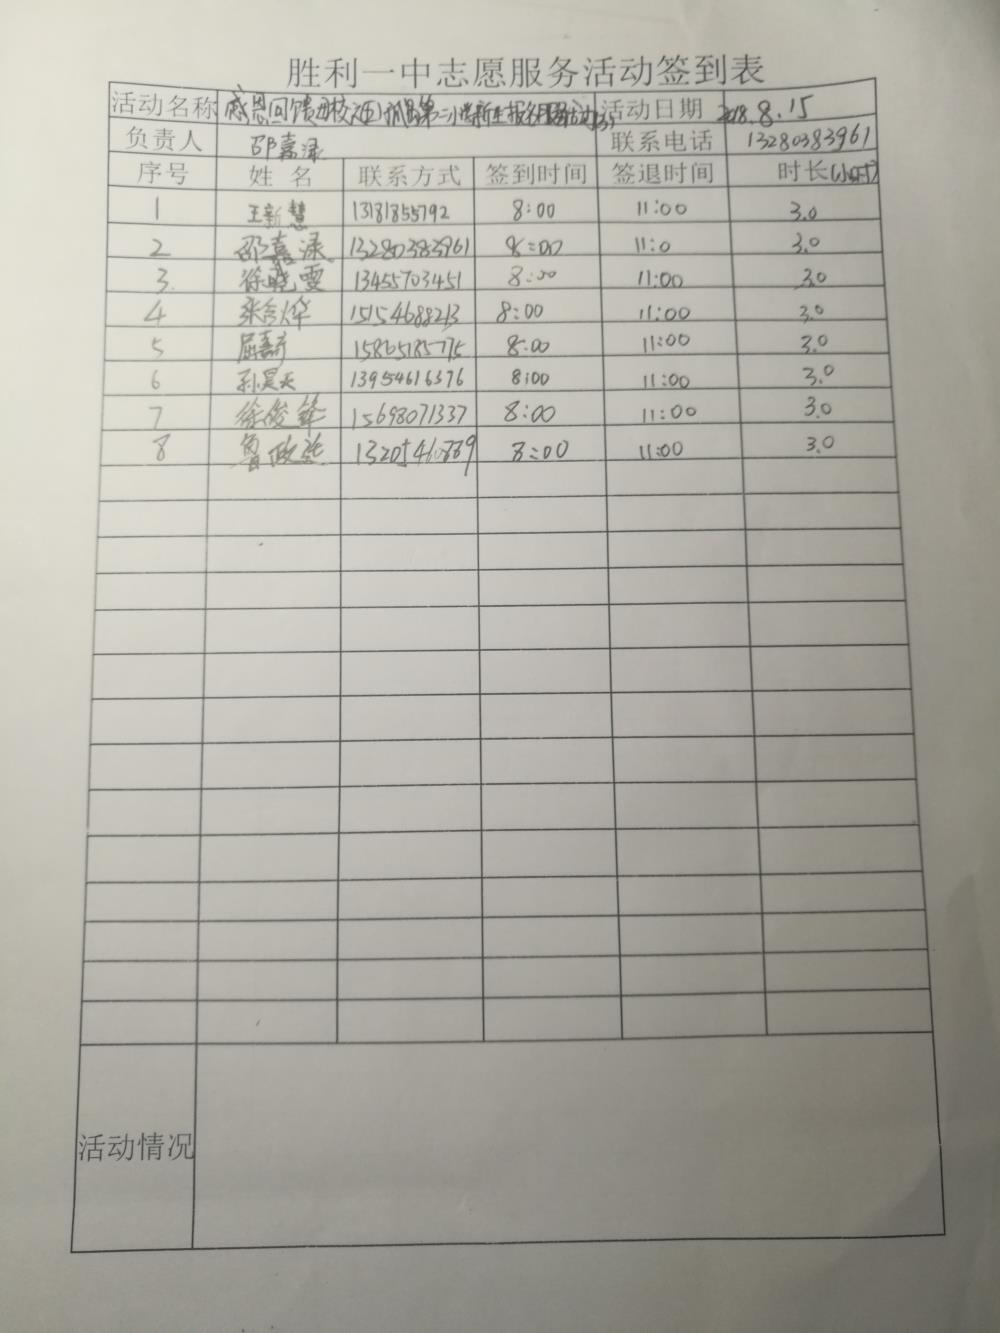 胜利一中志愿服务活动签到表
活动名称 感恩回馈母校 第二小学新生报名 活动 活动日期 2018.8.15
负责人 邵嘉渌 联系电话 13280383961
序号 姓名 联系方式 签到时间 签退时间 时长(小时)
1 王新慧 13181855792 8:00 11:00 3.0
2 邵嘉渌 13280383961 8:00 11:0 3.0
3. 徐晓雯 13455703451 8:00 11:00 3.0
4 张 烨 15154688213 8:00 11:00 3.0
5 屈 8:00 11:00 3.0
6 孙昊天 13954616376 8:00 11:00 3.0
7 徐俊锋 15698071337 8:00 11:00 3.0
8 鲁政 8:00 11:00 3.0
活动情况